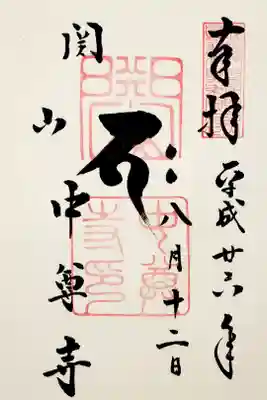 奉拝
平成廿六年
八月十二日
関山中尊寺